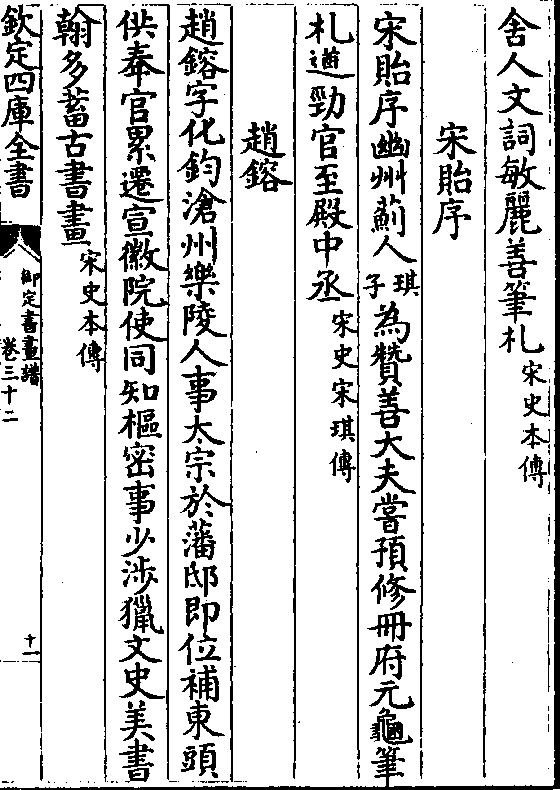 舍人文詞敏麗善筆札宋史本傳
宋貽序
宋貽序幽州薊人琪子為贊善大夫嘗預修冊府元龜筆
札遒勁官至殿中丞宋史宋琪傳
趙鎔
趙鎔字化鈞滄州樂陵人事太宗於藩邸即位補東頭
供奉官累遷宣徽院使同知樞密事少涉獵文史美書
翰多蓄古書畫宋史本傳
欽定四庫全書
御定書畫譜
卷三十二
十一